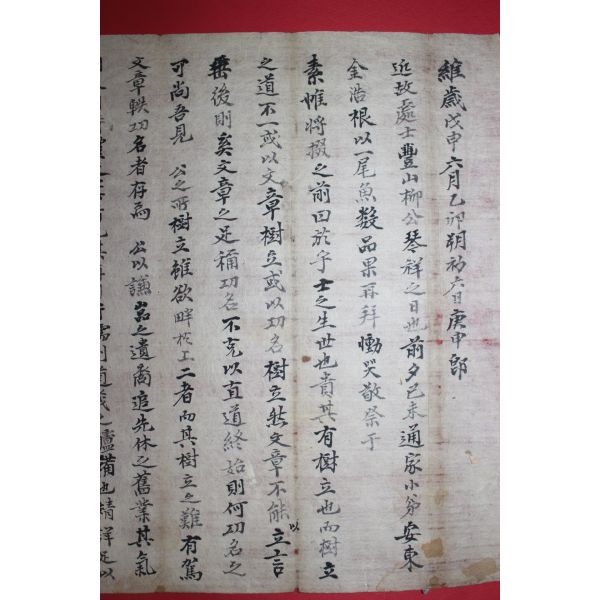 維歲戊申六月乙卯朔初六日庚申卽
近故處士豐山柳公琴祥之日也前夕己未通家小弟安東
金浩根以一尾魚數品果再拜慟哭敬祭于
素帷將掇之前曰於乎士之生世也貴其有樹立也而樹立
之道不一或以文章樹立或以功名樹立然文章不能以立言
垂後則奚文章之足稱功名不克以直道終始則何功名之
可尙吾見 公之所樹立雖欲畔於上二者而其樹立之難有駕
文章軼功名者存焉 公以謙嵒之遺裔追先休之舊業其氣